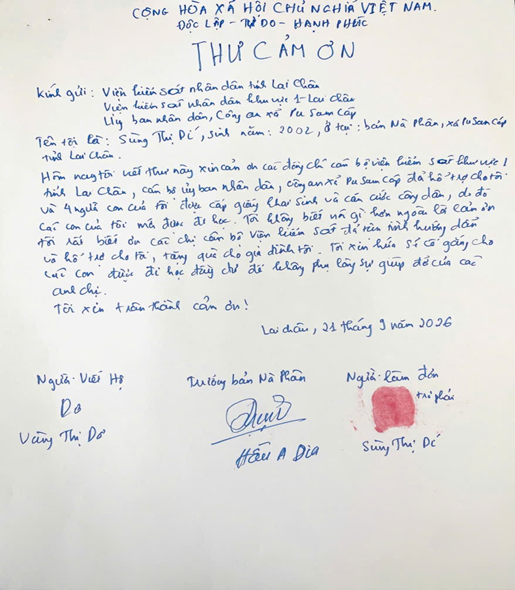 CỘNG HÒA XÃ HỘI CHỦ NGHĨA VIỆT NAM.
ĐỘC LẬP - TỰ DO - HẠNH PHÚC
THƯ CẢM ƠN
Kính gửi: Viện kiểm sát nhân dân tỉnh Lai Châu
Viện kiểm sát nhân dân khu vực 1 - Lai Châu
Uỷ ban nhân dân, Công an xã Pu Sam Cáp
Tên tôi là: Sùng Thị Dí, sinh năm: 2002, ở tại: bản Nà Phân, xã Pu Sam Cáp
tỉnh Lai Châu.
Hôm nay tôi viết thư này xin cảm ơn các đồng chí cán bộ viện kiểm sát khu vực 1
tỉnh Lai Châu, cán bộ uỷ ban nhân dân, công an xã Pu Sam Cáp đã hỗ trợ cho tôi
và 4 người con của tôi được cấp giấy khai sinh và căn cước công dân, do đó
các con của tôi mới được đi học. Tôi không biết nói gì hơn ngoài lời cảm ơn
tôi rất biết ơn các chị cán bộ Viện kiểm sát đã tận tình hướng dẫn
và hỗ trợ cho tôi, tặng quà cho gia đình tôi. Tôi xin hứa sẽ cố gắng cho
các con được đi học đầy đủ để không phụ lòng sự giúp đỡ của các
anh chị.
Tôi xin trân thành cảm ơn!
Lai châu, 21 tháng 9 năm 2026
Người Viết Hộ Trưởng bản Nà Phân Người làm đơn
Dơ trỏ phải
Vàng Thị Dơ Hầu A Dia Sùng Thị Dí